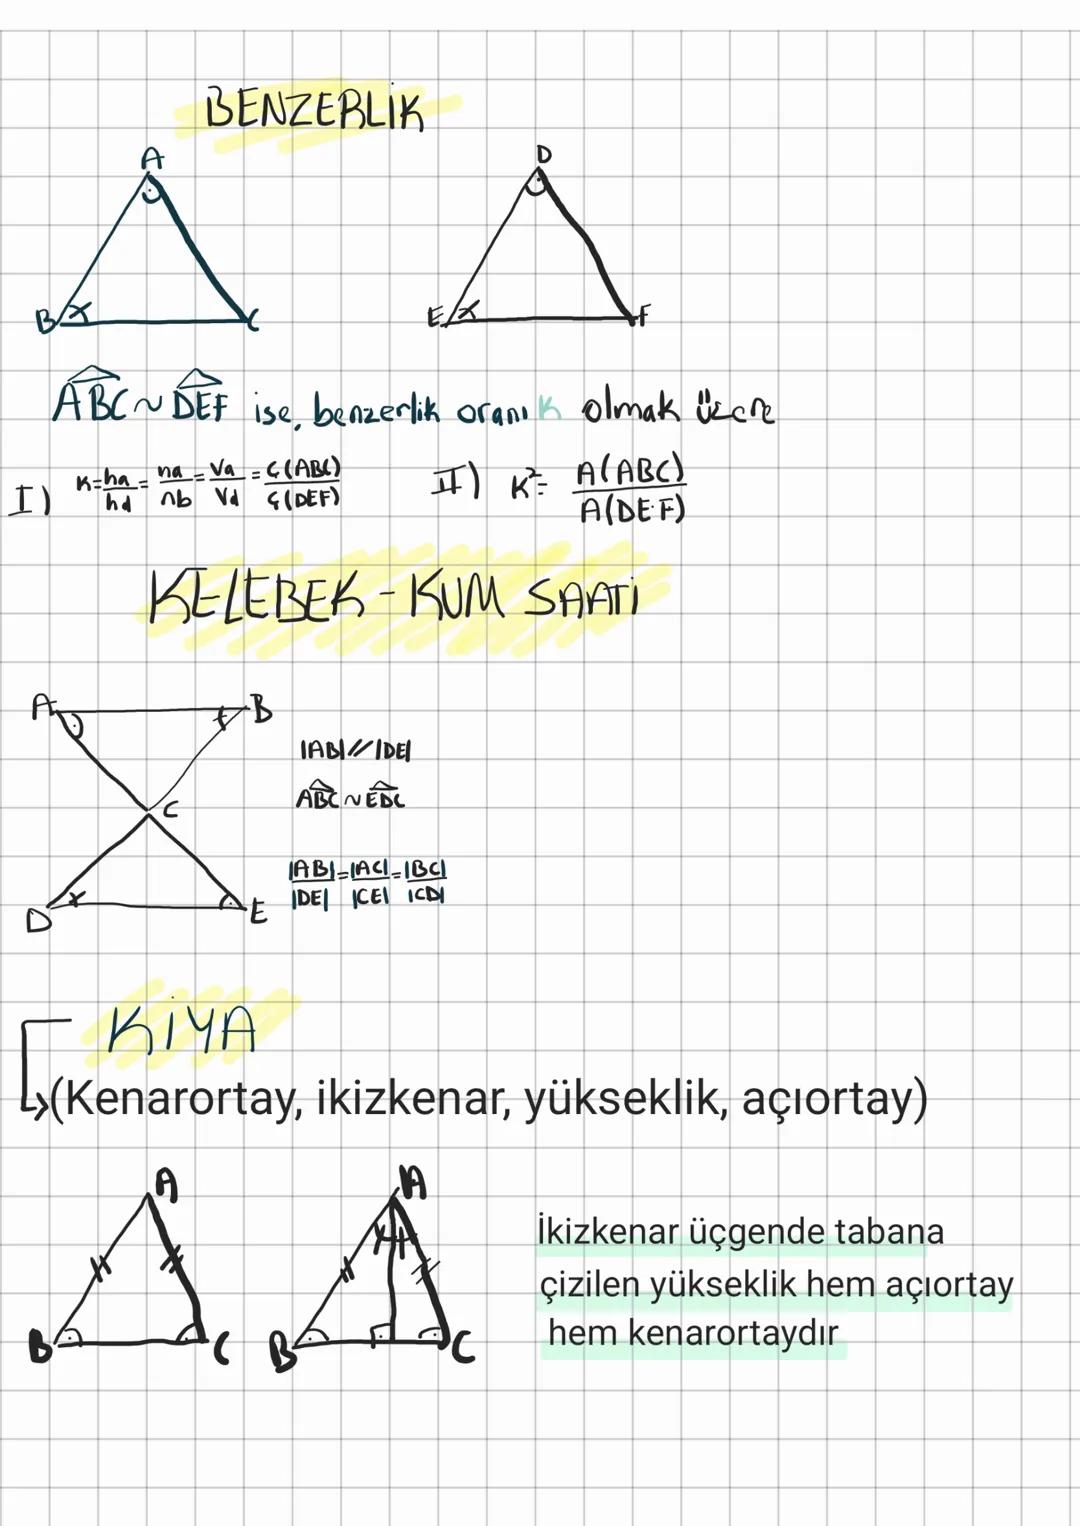 BENZERLİK
A
D
B
C
E
F
ABC ~ DEF ise, benzerlik oranı K olmak üzere
I) K = ha/hd = na/nb = Va/Vd = Ç(ABC)/Ç(DEF)
II) K² = A(ABC)/A(DEF)
KELEBEK - KUM SAATİ
A
B
|AB| // |DE|
ABC ~ EDC
C
|AB|/|DE| = |AC|/|CE| = |BC|/|CD|
D
E
KİYA
(Kenarortay, ikizkenar, yükseklik, açıortay)
A
A
İkizkenar üçgende tabana
çizilen yükseklik hem açıortay
hem kenarortaydır
B
C
B
C